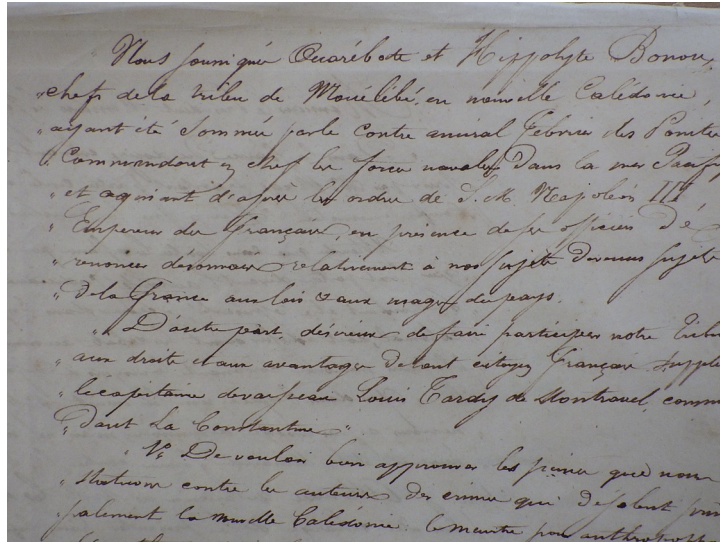 Nous soussignés Ouarébate et Hippolyte Bonou,
"chefs de la tribu de Mouélébé, en nouvelle Calédonie,
"ayant été sommés par le Contre amiral Febrier des Pointes
"Commandant en chef les forces navales dans la mer Pacif
"et agissant d'après les ordres de S. M. Napoléon III
"Empereur des Français, en présence de ses officiers de
"renoncer désormais relativement à nos sujets devenus sujets
"de la France aux lois & aux usages du pays.
"D'autre part, désireux de faire participer notre Tribu
"aux droits et aux avantages de tout citoyen Français supplie
"le capitaine de vaisseau Louis Tardy de Montravel, comm
"dant La Constantine"
"1º De vouloir bien approuver les peines que nous
"statuons contre les auteurs des crimes qui désolent prin
"palement la nouvelle Calédonie le meurtre pour anthropoph